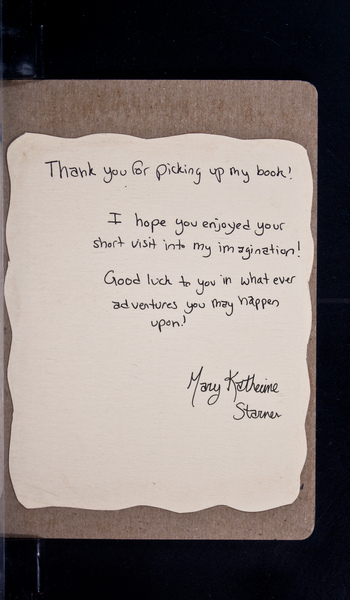 Thank you for picking up my book!
I hope you enjoyed your
short visit into my imagination!
Good luck to you in whatever
adventures you may happen
upon!
Mary Katherine
Starner